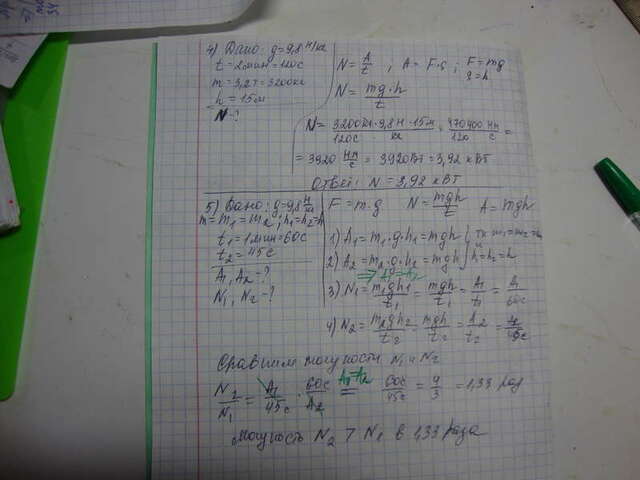 4) Дано: g=9,8 Н/кг
t = 2мин = 120с
m = 3,2т = 3200кг
h = 15м
N-?
N = A/t, A = F·s; F = mg
s = h
N = mg·h/t
N = 3200кг·9,8Н·15м/120с кг = 470400 Нм/120 с =
= 3920 Нм/с = 3920Вт = 3,92 кВт
Ответ: N = 3,92 кВт
5) Дано: g=9,8 Н/кг
m = m1 = m2; h1=h2=h
t1 = 1мин = 60с
t2 = 45с
A1, A2 -?
N1, N2 -?
F = m·g N = mgh/t A = mgh
1) A1 = m1·g·h1 = mgh } тк m1=m2=m
и
2) A2 = m2·g·h2 = mgh } h1=h2=h
=> A1 = A2
3) N1 = m1gh1/t1 = mgh/t1 = A1/t1 = A1/60с
4) N2 = m2gh2/t2 = mgh/t2 = A2/t2 = A2/45с
Сравним мощности N1 и N2
N2/N1 = A1/45с · 60с/A2 A1=A2 = 60с/45с = 4/3 = 1,33 раз
Мощность N2 > N1 в 1,33 раза